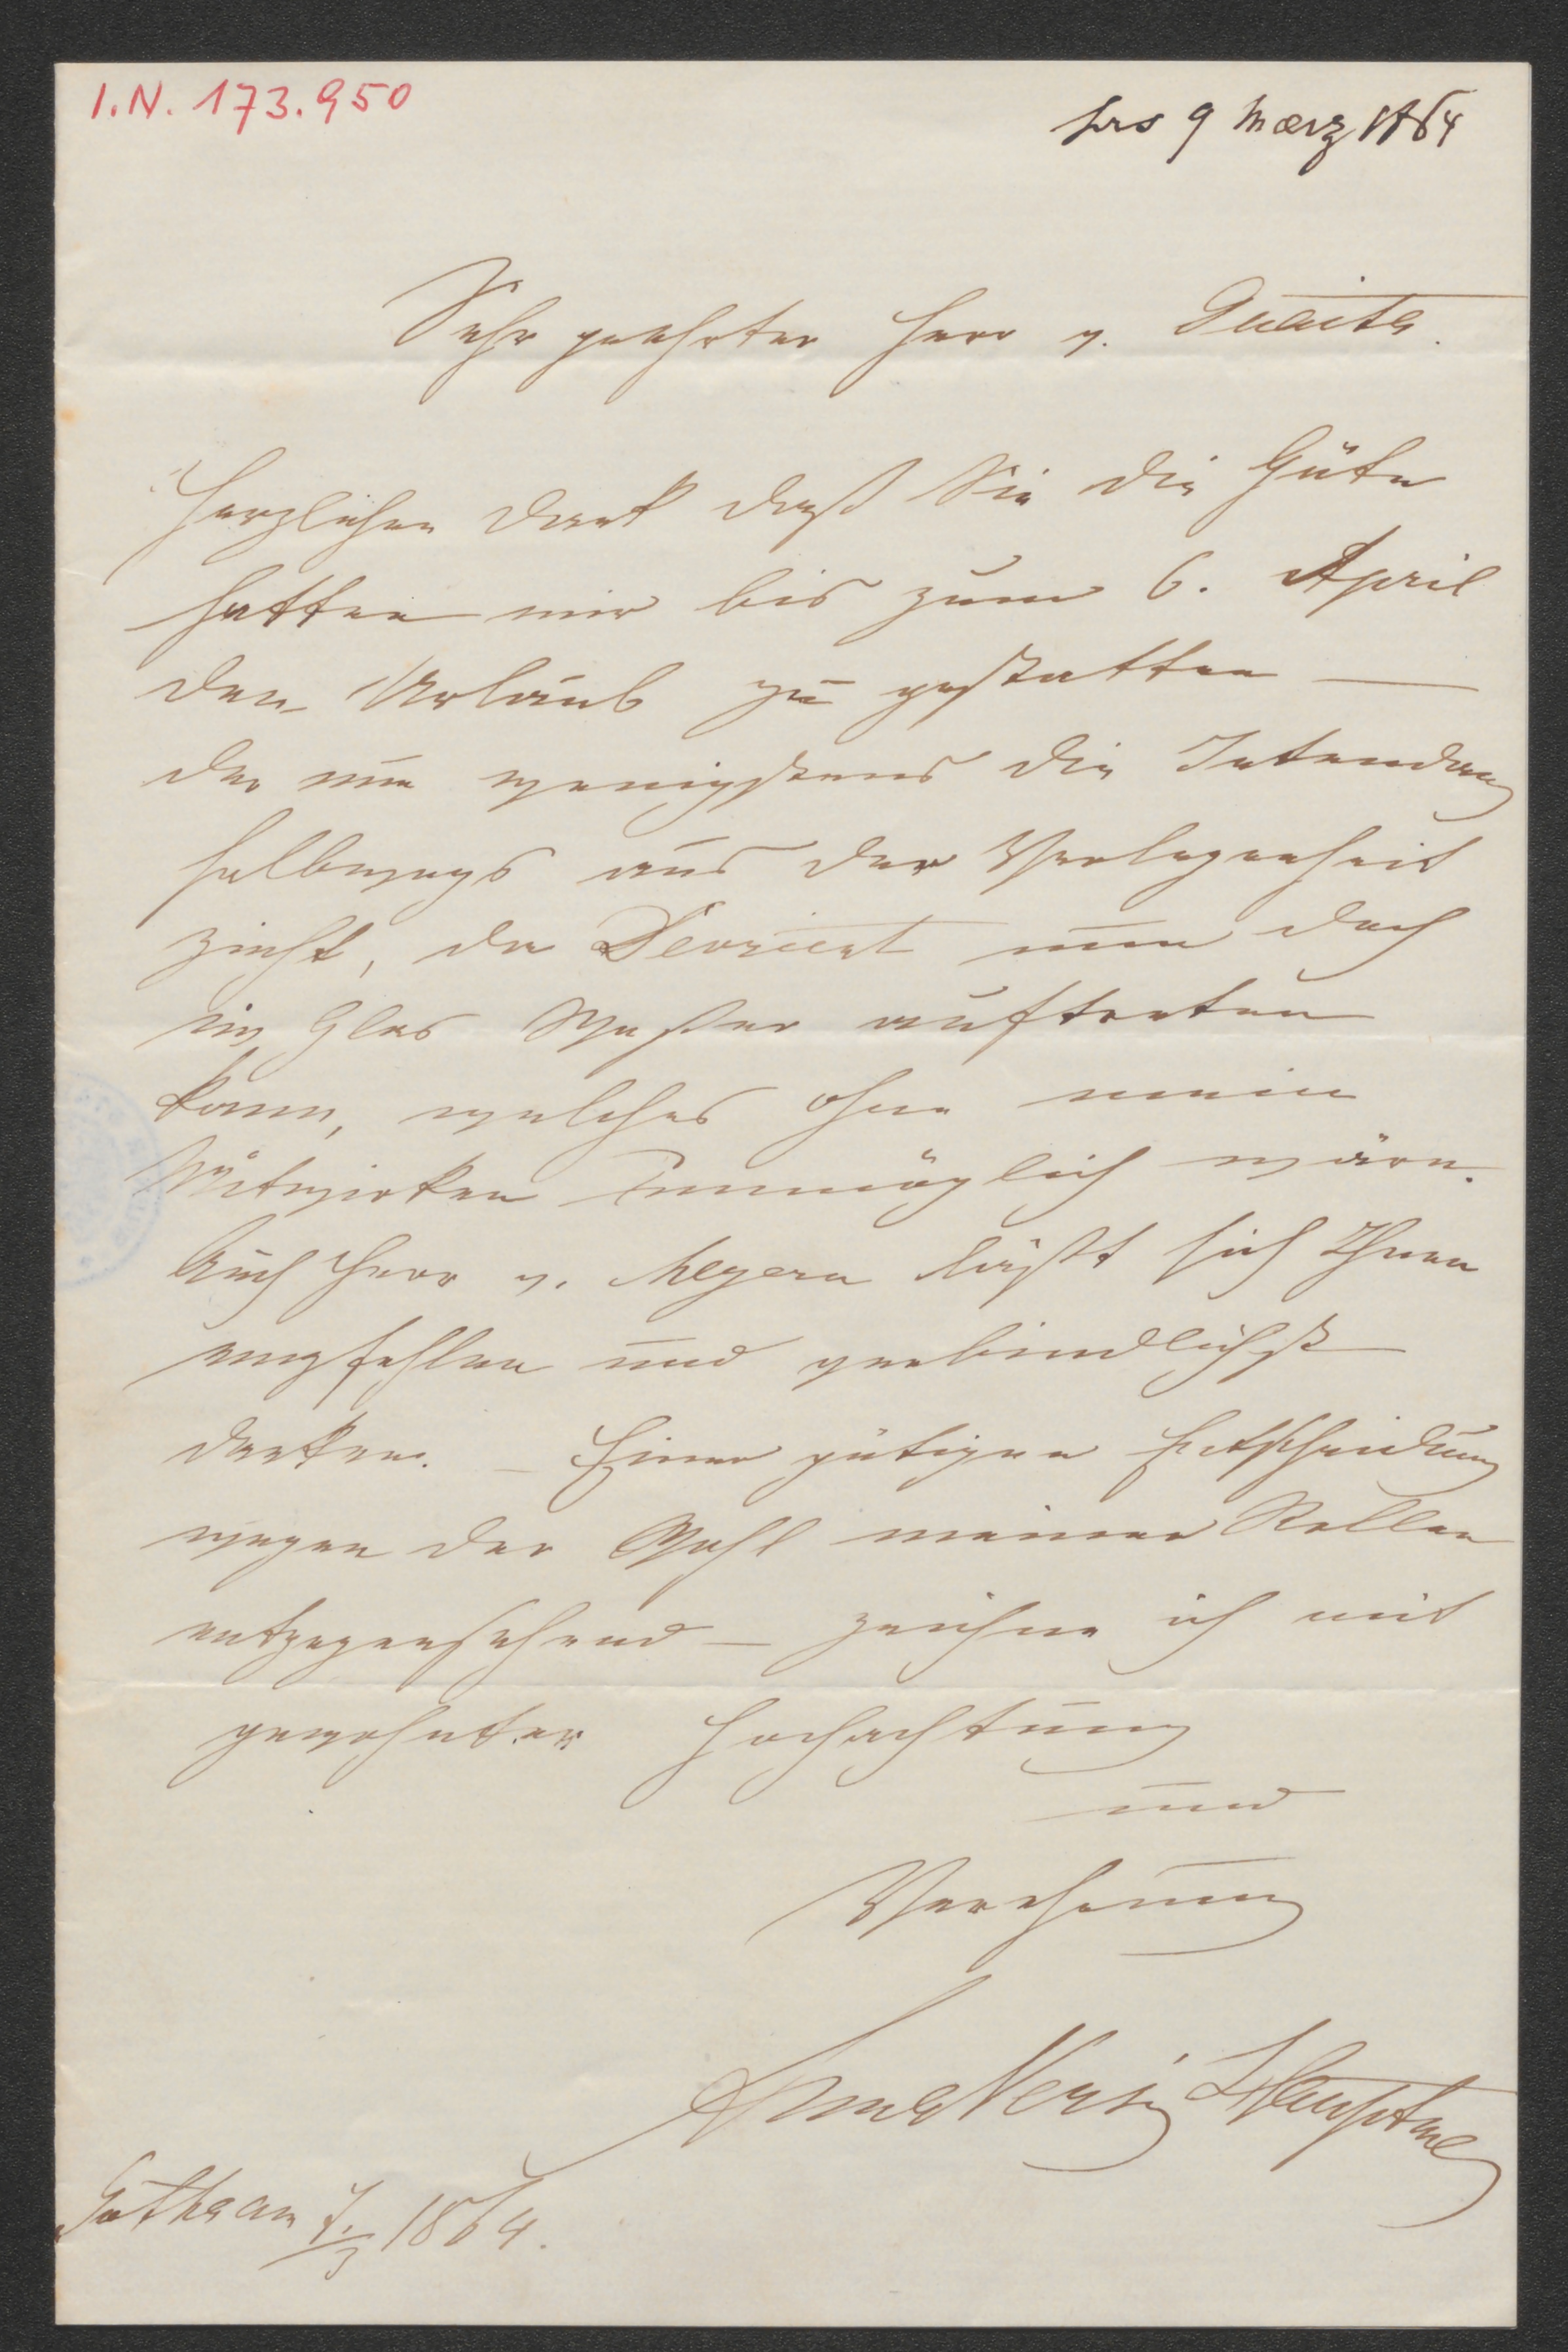 I.N. 173.950
9 Maerz 1864
Sehr geehrter Herr v. Guaita.
Herzlichen Dank daß Sie die Güte
hatten mir bis zum 6. April
den Urlaub zu gestatten —
der nun wenigstens die Intendanz
halbwegs aus der Verlegenheit
zieht, da Devrient nun doch
im Glas Wasser auftreten
kann, welches ohne mein
Mitwirken unmöglich wäre.
Auch Herr v. Meyern läßt sich Ihnen
empfehlen und verbindlichst
danken. – Einer gütigen Entscheidung
wegen der Wahl meiner Rollen
entgegensehend – zeichne ich mit
gewohnter Hochachtung
und
Verehrung
Anna Versing Hauptmann
Gotha am 7./3 1864.